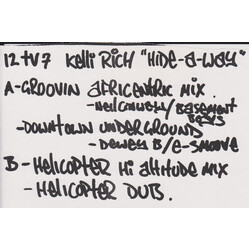 12+V7 Kelli RICH "HiDe-a-way"
A-GROOVIN AFRICENTRIC MIX.
-Neil Conwell/ BASEMENT
BOYS
-DOWNTOWN UNDERGROUND
-Dewey B/e-smoove
B-HeLICOPTeR Hi aLtituDe MiX
-HeLICOPTeR DUB.